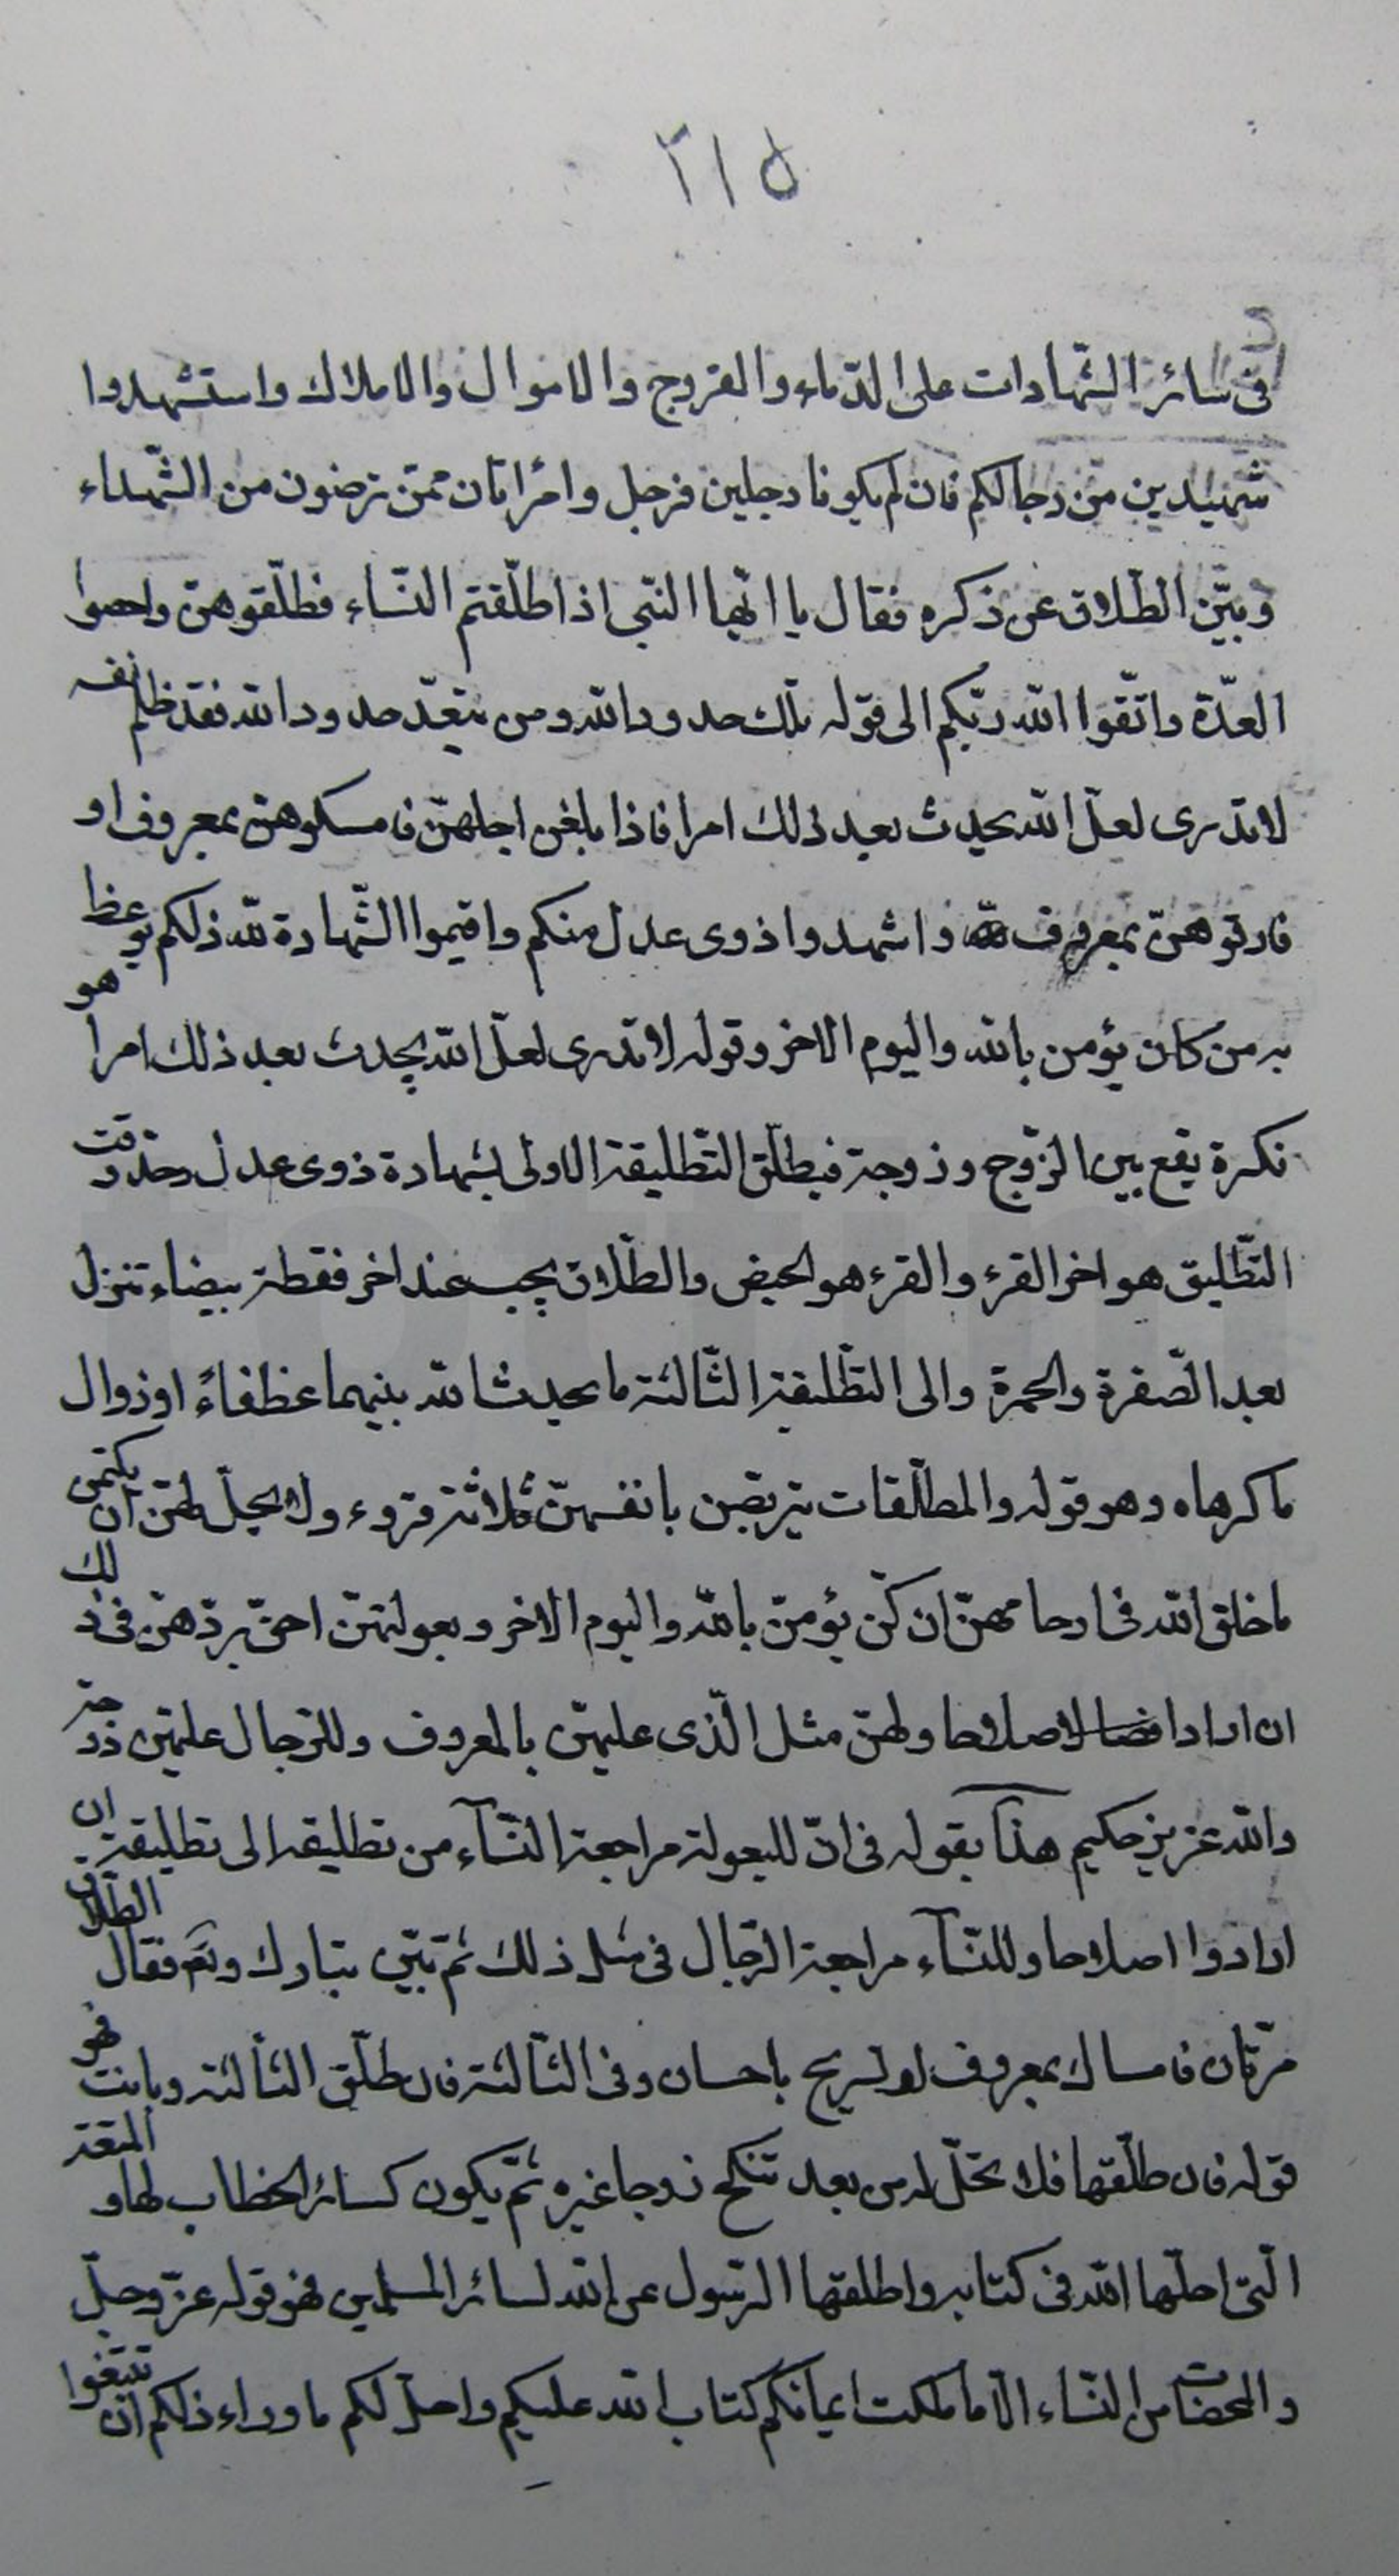 ٢١٥
فى سائر الشّهادات على الدّماء والفروج والاموال والاملاك واستشهدوا
شهيدين من رجالكم فان لم يكونا رجلين فرجل وامرأتان ممّن ترضون من الشّهداء
وبيّن الطّلاق عن ذكره فقال يا ايّها النّبى اذا طلّقتم النّساء فطلّقوهنّ واحصوا
العدّة واتّقوا اللّه ربّكم الى قوله تلك حدود اللّه ومن يتعدّ حدود اللّه فقد ظلم نفسه
لا تدرى لعلّ اللّه يحدث بعد ذلك امرا فاذا بلغن اجلهنّ فامسكوهنّ بمعروف او
فارقوهنّ بمعروف واشهدوا ذوى عدل منكم واقيموا الشّهادة للّه ذلكم يوعظ
به من كان يؤمن باللّه واليوم الاخر وقوله لا تدرى لعلّ اللّه يحدث بعد ذلك امرا هو
نكرة يقع بين الزّوج وزوجته فيطلّق التّطليقة الاولى بشهادة ذوى عدل وحدّ وقت
التّطليق هو اخر القرء والقرء هو الحيض والطّلاق يجب عند اخر نقطة بيضاء تنزل
بعد الصّفرة والحمرة والى التّطليقة الثّالثة ما يحدث اللّه بينهما عطفاً او زوال
ما كرهاه وهو قوله والمطلّقات يتربّصن بانفسهنّ ثلاثة قروء ولا يحلّ لهنّ ان يكتمن
ما خلق اللّه فى ارحامهنّ ان كنّ يؤمنّ باللّه واليوم الاخر وبعولتهنّ احقّ بردّهنّ فى ذلك
ان ارادوا اصلاحا ولهنّ مثل الّذى عليهنّ بالمعروف وللرّجال عليهنّ درجة
واللّه عزيز حكيم هذا بقوله فى انّ للبعولة مراجعة النّسآء من تطليقة الى تطليقة ان
ارادوا اصلاحا وللنّسآء مراجعة الرّجال فى مثل ذلك ثمّ تبيّن تبارك وتع فقال الطّلاق
مرّتان فامساك بمعروف او تسريح باحسان وفى الثّالثة فان طلّق الثّالثة وبانت فهو
قوله فان طلّقها فلا تحلّ له من بعد تنكح زوجا غيره ثمّ يكون كسائر الخطاب لها والمتعة
الّتى احلّها اللّه فى كتابه واطلقها الرّسول عن اللّه لسائر المسلمين فهو قوله عزّ وجلّ
والمحصنات من النّساء الّا ما ملكت ايمانكم كتاب اللّه عليكم واحلّ لكم ما وراء ذلكم ان تبتغوا